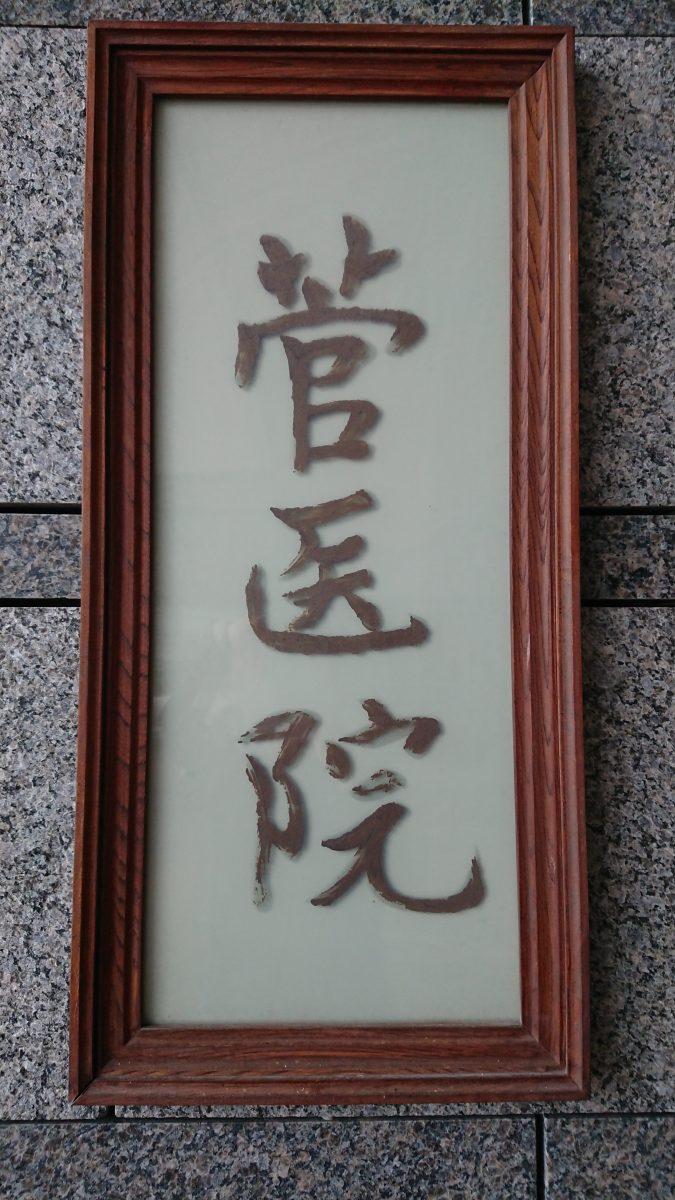 菅医院